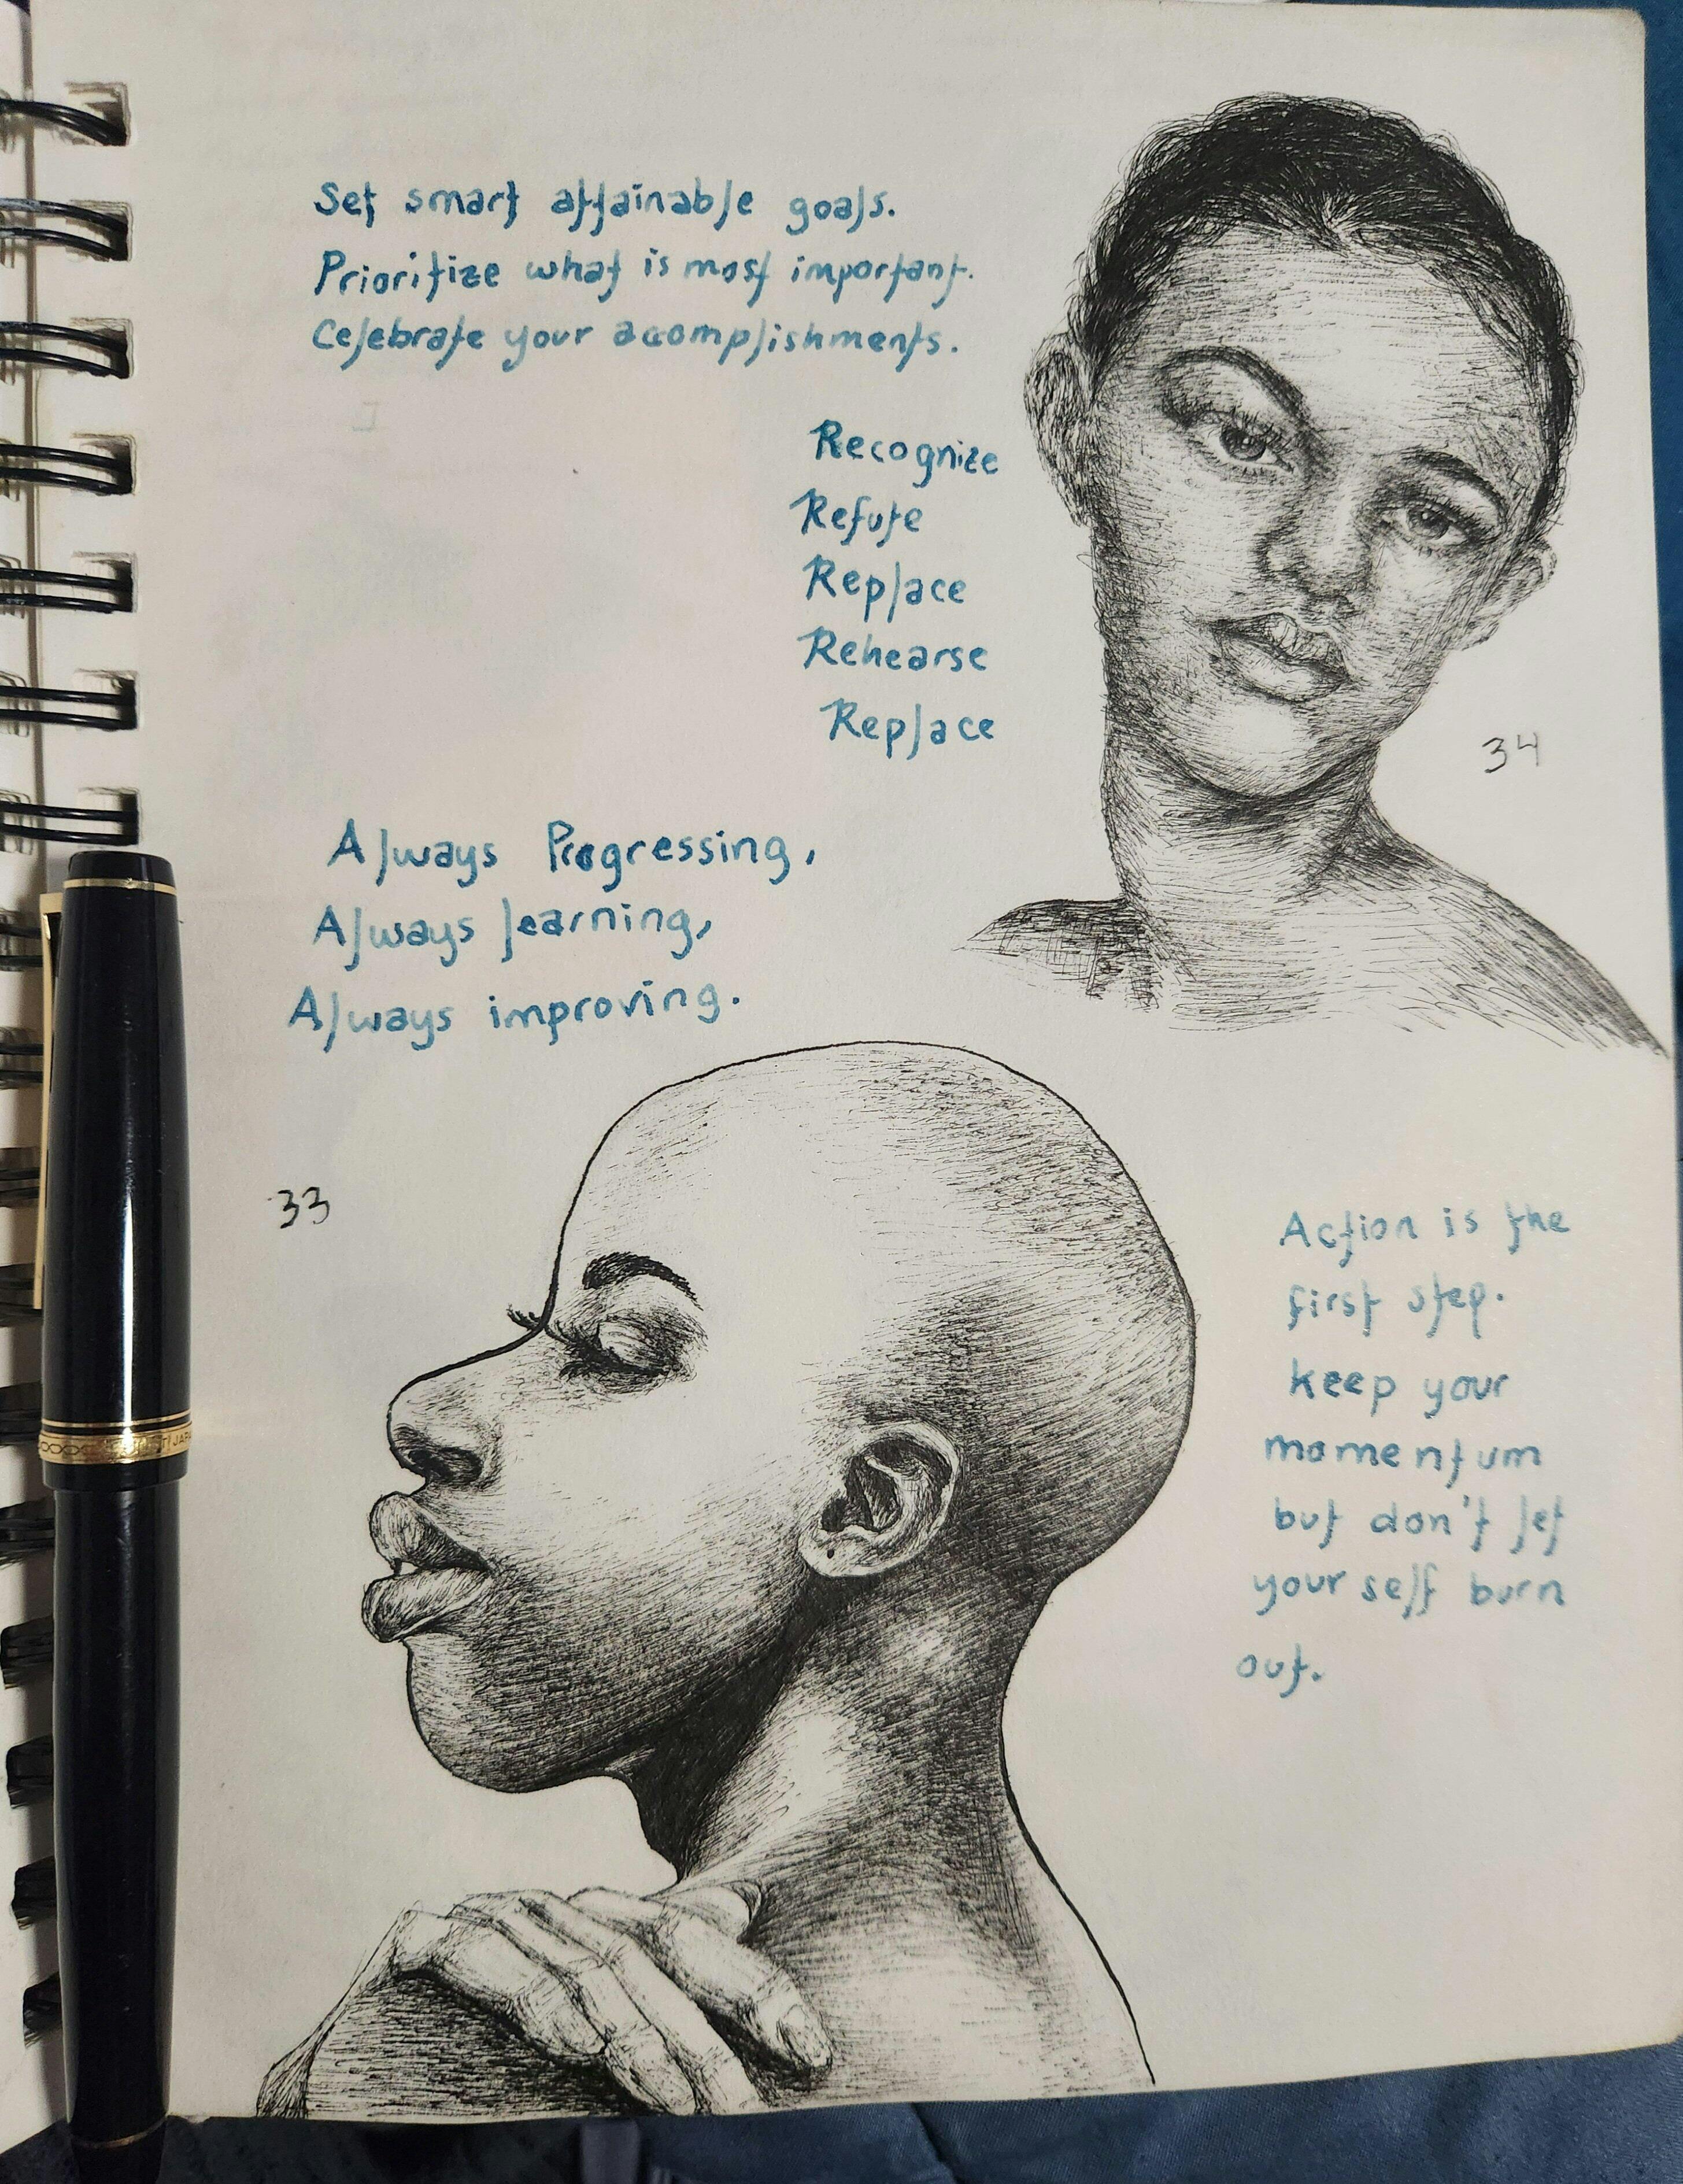 Set smart attainable goals.
Prioritize what is most important.
Celebrate your acomplishments.
Recognize
Refute
Replace
Rehearse
Replace
34
Always Progressing,
Always learning,
Always improving.
33
Action is the
first step.
keep your
momentum
but don't let
your self burn
out.
JAPA